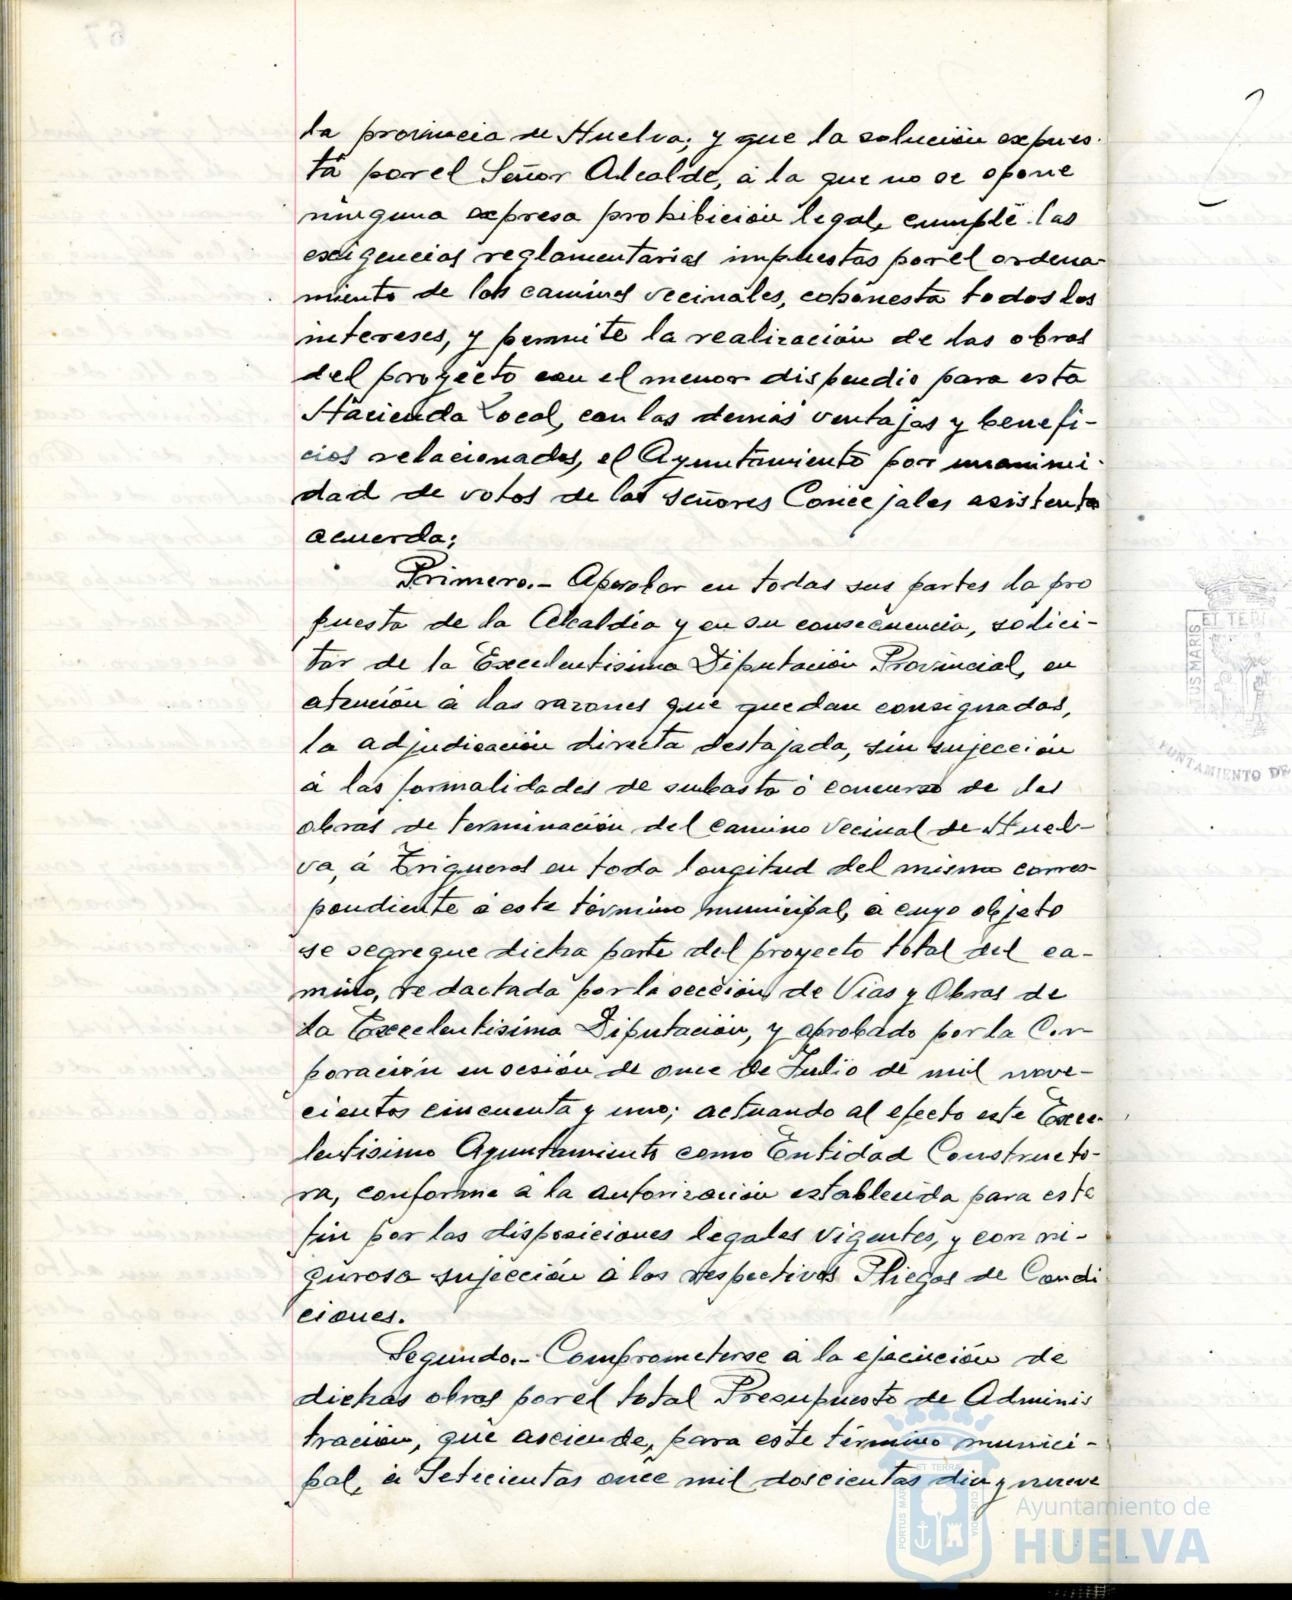 la provincia de Huelva; y que la solución expues-
ta por el Señor Alcalde, á la que no se opone
ninguna expresa prohibición legal, cumple las
exigencias reglamentarias impuestas por el ordena-
miento de los caminos vecinales, cohonesta todos los
intereses, y permite la realización de las obras
del proyecto con el menor dispendio para esta
Hacienda Local, con las demás ventajas y benefi-
cios relacionados, el Ayuntamiento por unanimi-
dad de votos de los señores Concejales asistentes
acuerda:
Primero.- Aprobar en todas sus partes la pro
puesta de la Alcaldía y en su consecuencia, solici-
tar de la Excelentísima Diputación Provincial, en
atención á las razones que quedan consignadas,
la adjudicación directa destajada, sin sujección
á las formalidades de subasta ó concurso de las
obras de terminación del camino vecinal de Huel-
va, á Trigueros en toda longitud del mismo corres-
pondiente á este término municipal, á cuyo objeto
se segregue dicha parte del proyecto total del ca-
mino, redactada por la sección de Vías y Obras de
la Excelentísima Diputación, y aprobado por la Cor-
poración en sesión de once de Julio de mil nove-
cientos cincuenta y uno; actuando al efecto este Exce-
lentísimo Ayuntamiento como Entidad Constructo-
ra, conforme á la autorización establecida para este
fin por las disposiciones legales vigentes, y con ri-
gurosa sujección á los respectivos Pliegos de Condi
ciones.
Segundo.- Comprometerse á la ejecución de
dichas obras por el total Presupuesto de Adminis
tración, que asciende, para este término munici-
pal, á Setecientas once mil doscientas diez y nueve
67
ET TERR
PORTUS MARIS
AYUNTAMIENTO DE
PORTUS MARIS
ET TERRAE
CUSTODIA
Ayuntamiento de
HUELVA